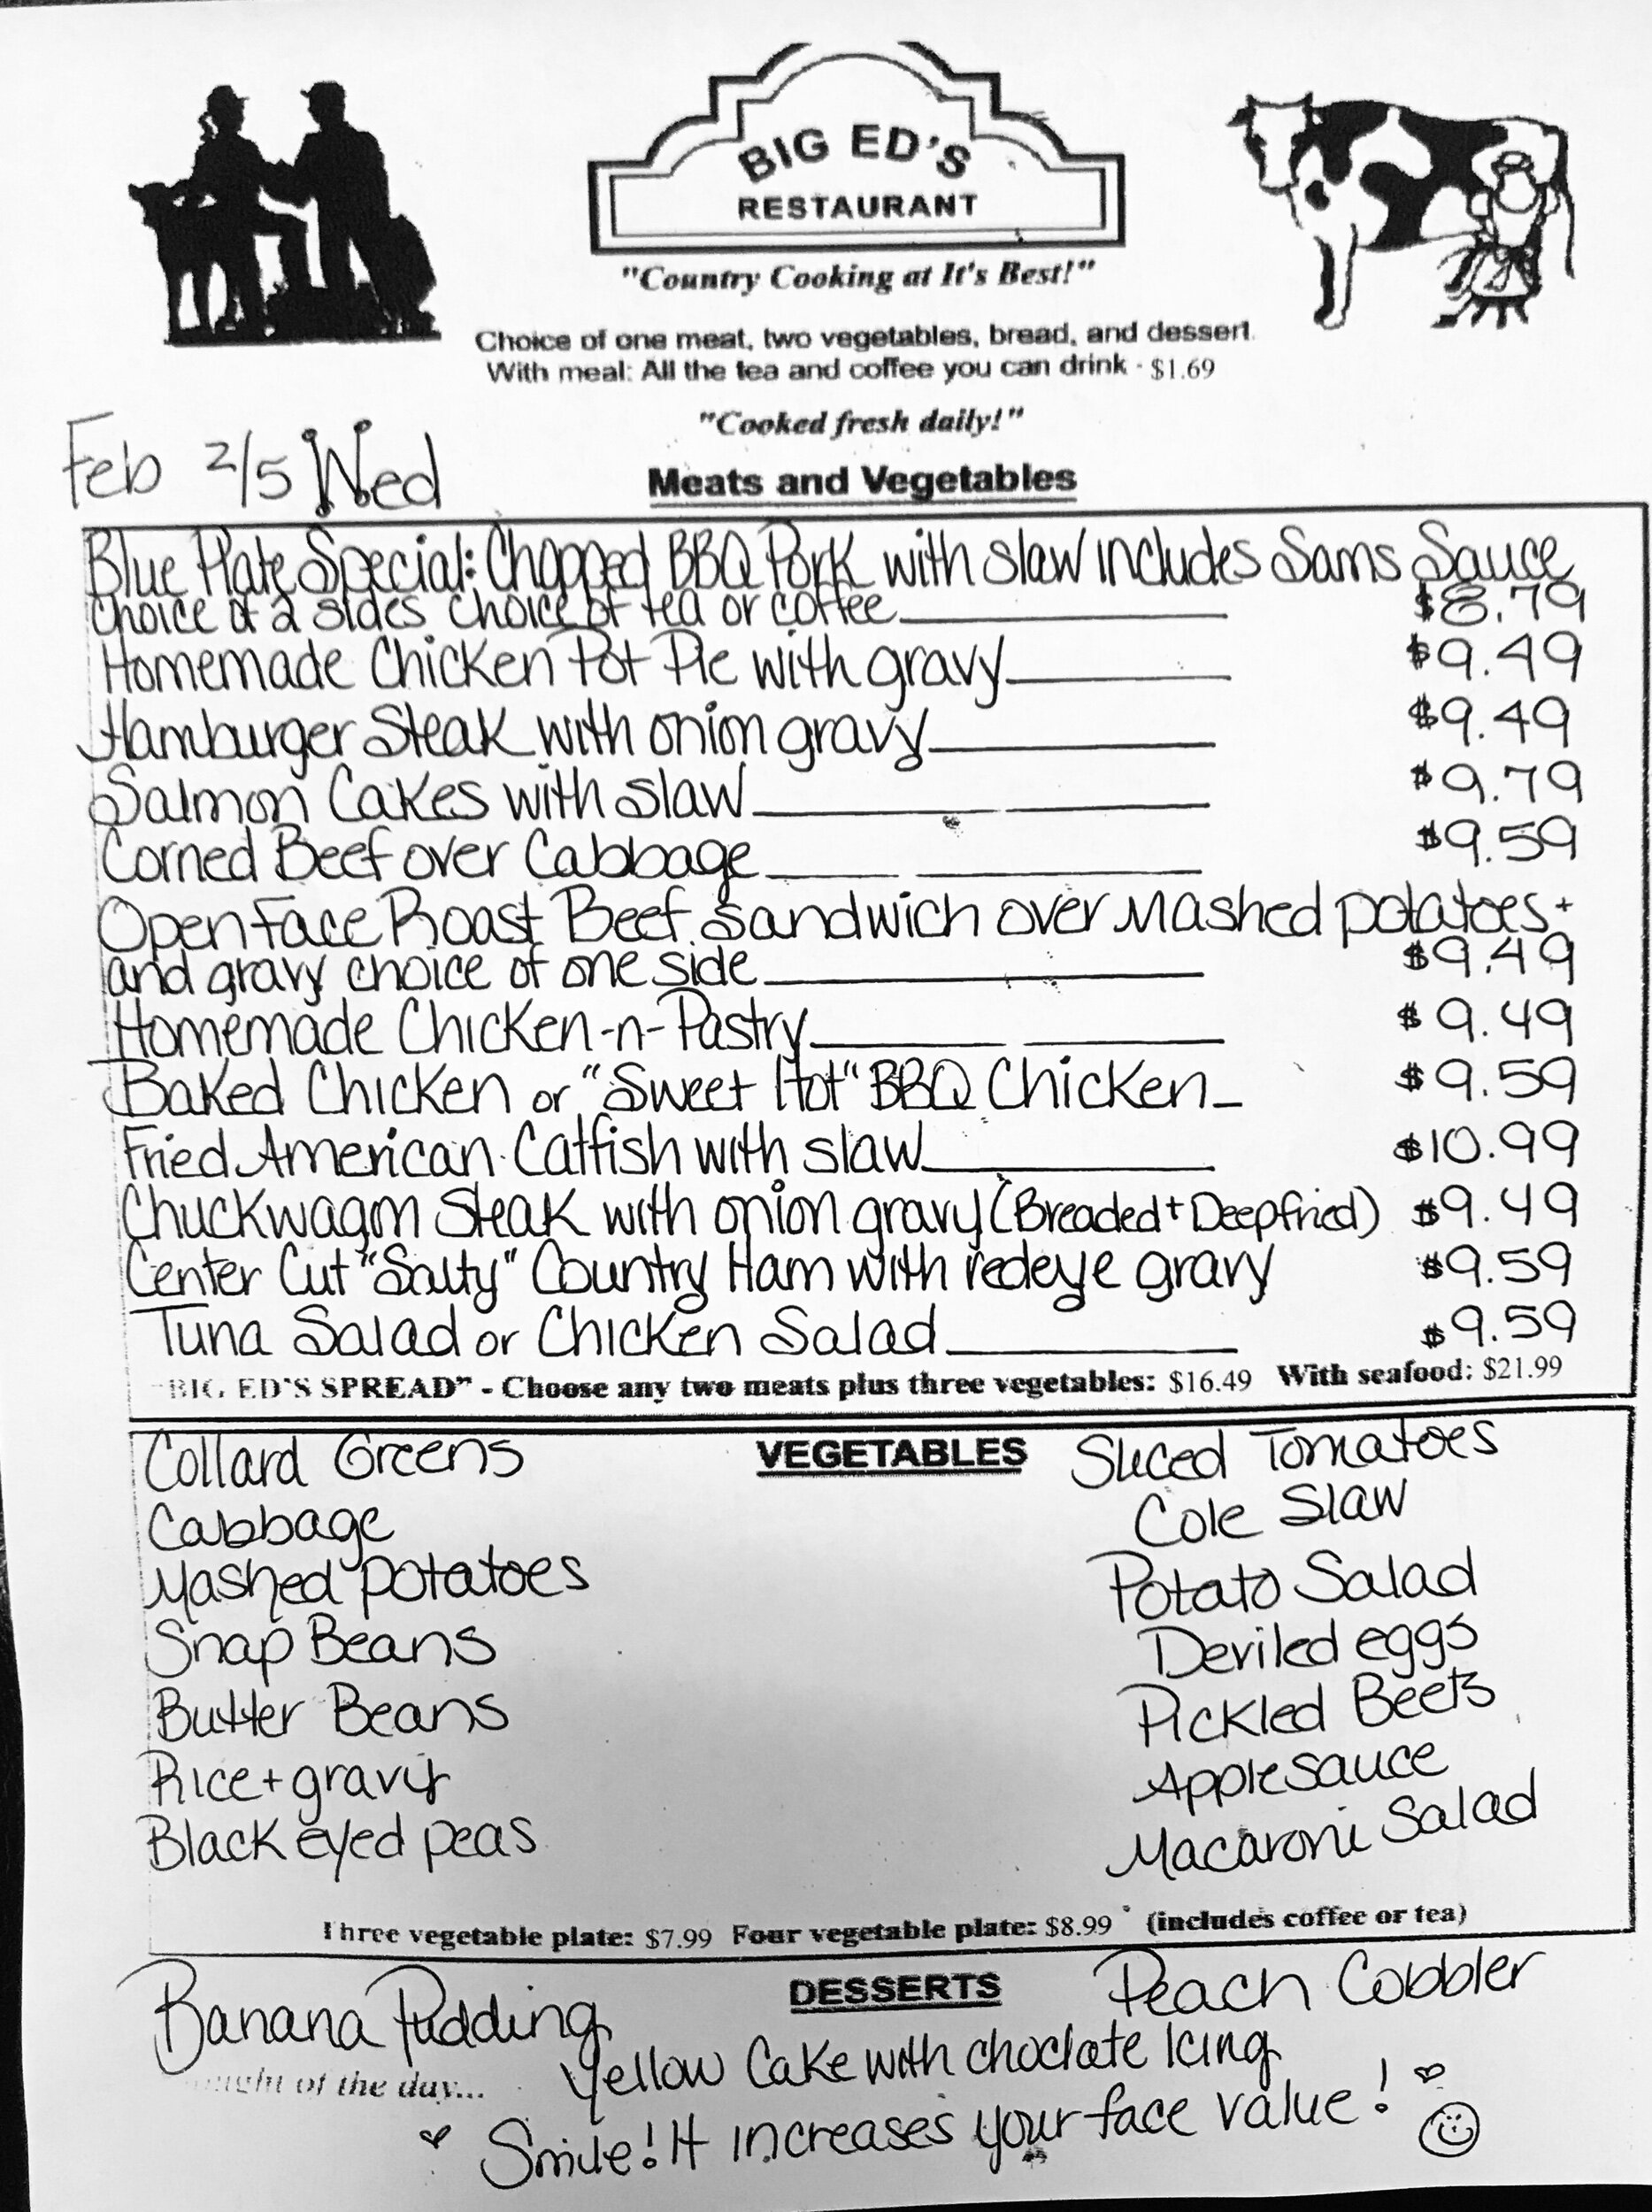 BIG ED'S
RESTAURANT
"Country Cooking at It's Best!"
Choice of one meat, two vegetables, bread, and dessert.
With meal: All the tea and coffee you can drink - $1.69
"Cooked fresh daily!"
Feb 2/5 Wed
Meats and Vegetables
Blue Plate Special: Chopped BBQ Pork with slaw includes Sams Sauce
Choice of 2 sides choice of tea or coffee $8.79
Homemade Chicken Pot Pie with gravy $9.49
Hamburger Steak with onion gravy $9.49
Salmon Cakes with slaw $9.79
Corned Beef over Cabbage $9.59
Open Face Roast Beef Sandwich over Mashed potatoes +
and gravy choice of one side $9.49
Homemade Chicken-n-Pastry $9.49
Baked Chicken or "Sweet Hot" BBQ Chicken $9.59
Fried American Catfish with slaw $10.99
Chuckwagon Steak with onion gravy (Breaded + Deepfried) $9.49
Center Cut "Salty" Country Ham with redeye gravy $9.59
Tuna Salad or Chicken Salad $9.59
"BIG ED'S SPREAD" - Choose any two meats plus three vegetables: $16.49 With seafood: $21.99
VEGETABLES
Collard Greens
Cabbage
Mashed Potatoes
Snap Beans
Butter Beans
Rice + gravy
Black eyed peas
Sliced Tomatoes
Cole Slaw
Potato Salad
Deviled eggs
Pickled Beets
Applesauce
Macaroni Salad
Three vegetable plate: $7.99 Four vegetable plate: $8.99 (includes coffee or tea)
DESSERTS
Banana Pudding
Peach Cobbler
Yellow Cake with choclate Icing
of the day...
Smile! It increases your face value!